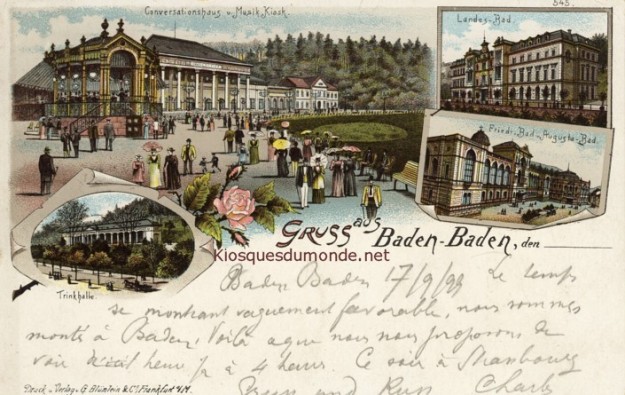 Conversationshaus u. Musik Kiosk.
545.
Landes-Bad.
Friedr.-Bad-Augusta-Bad.
Trinkhalle.
Gruss aus Baden-Baden, den
Kiosquesdumonde.net
Baden Baden 17/9/99 Le temps
se montrant vaguement favorable, nous sommes
montés à Baden. Voilà que nous nous proposons de
voir heur à 4 heures. Ce soir à Strasbourg
and Charles
Druck u. Verlag v. G. Blümlein & Co., Frankfurt a/M.